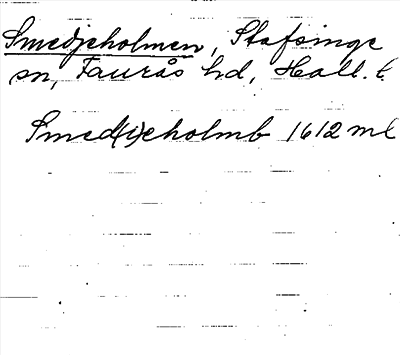 Smedjeholmen, Stafsinge
sn, Faurås hd, Hall. l.
Smed(i)eholmb 1612 ml